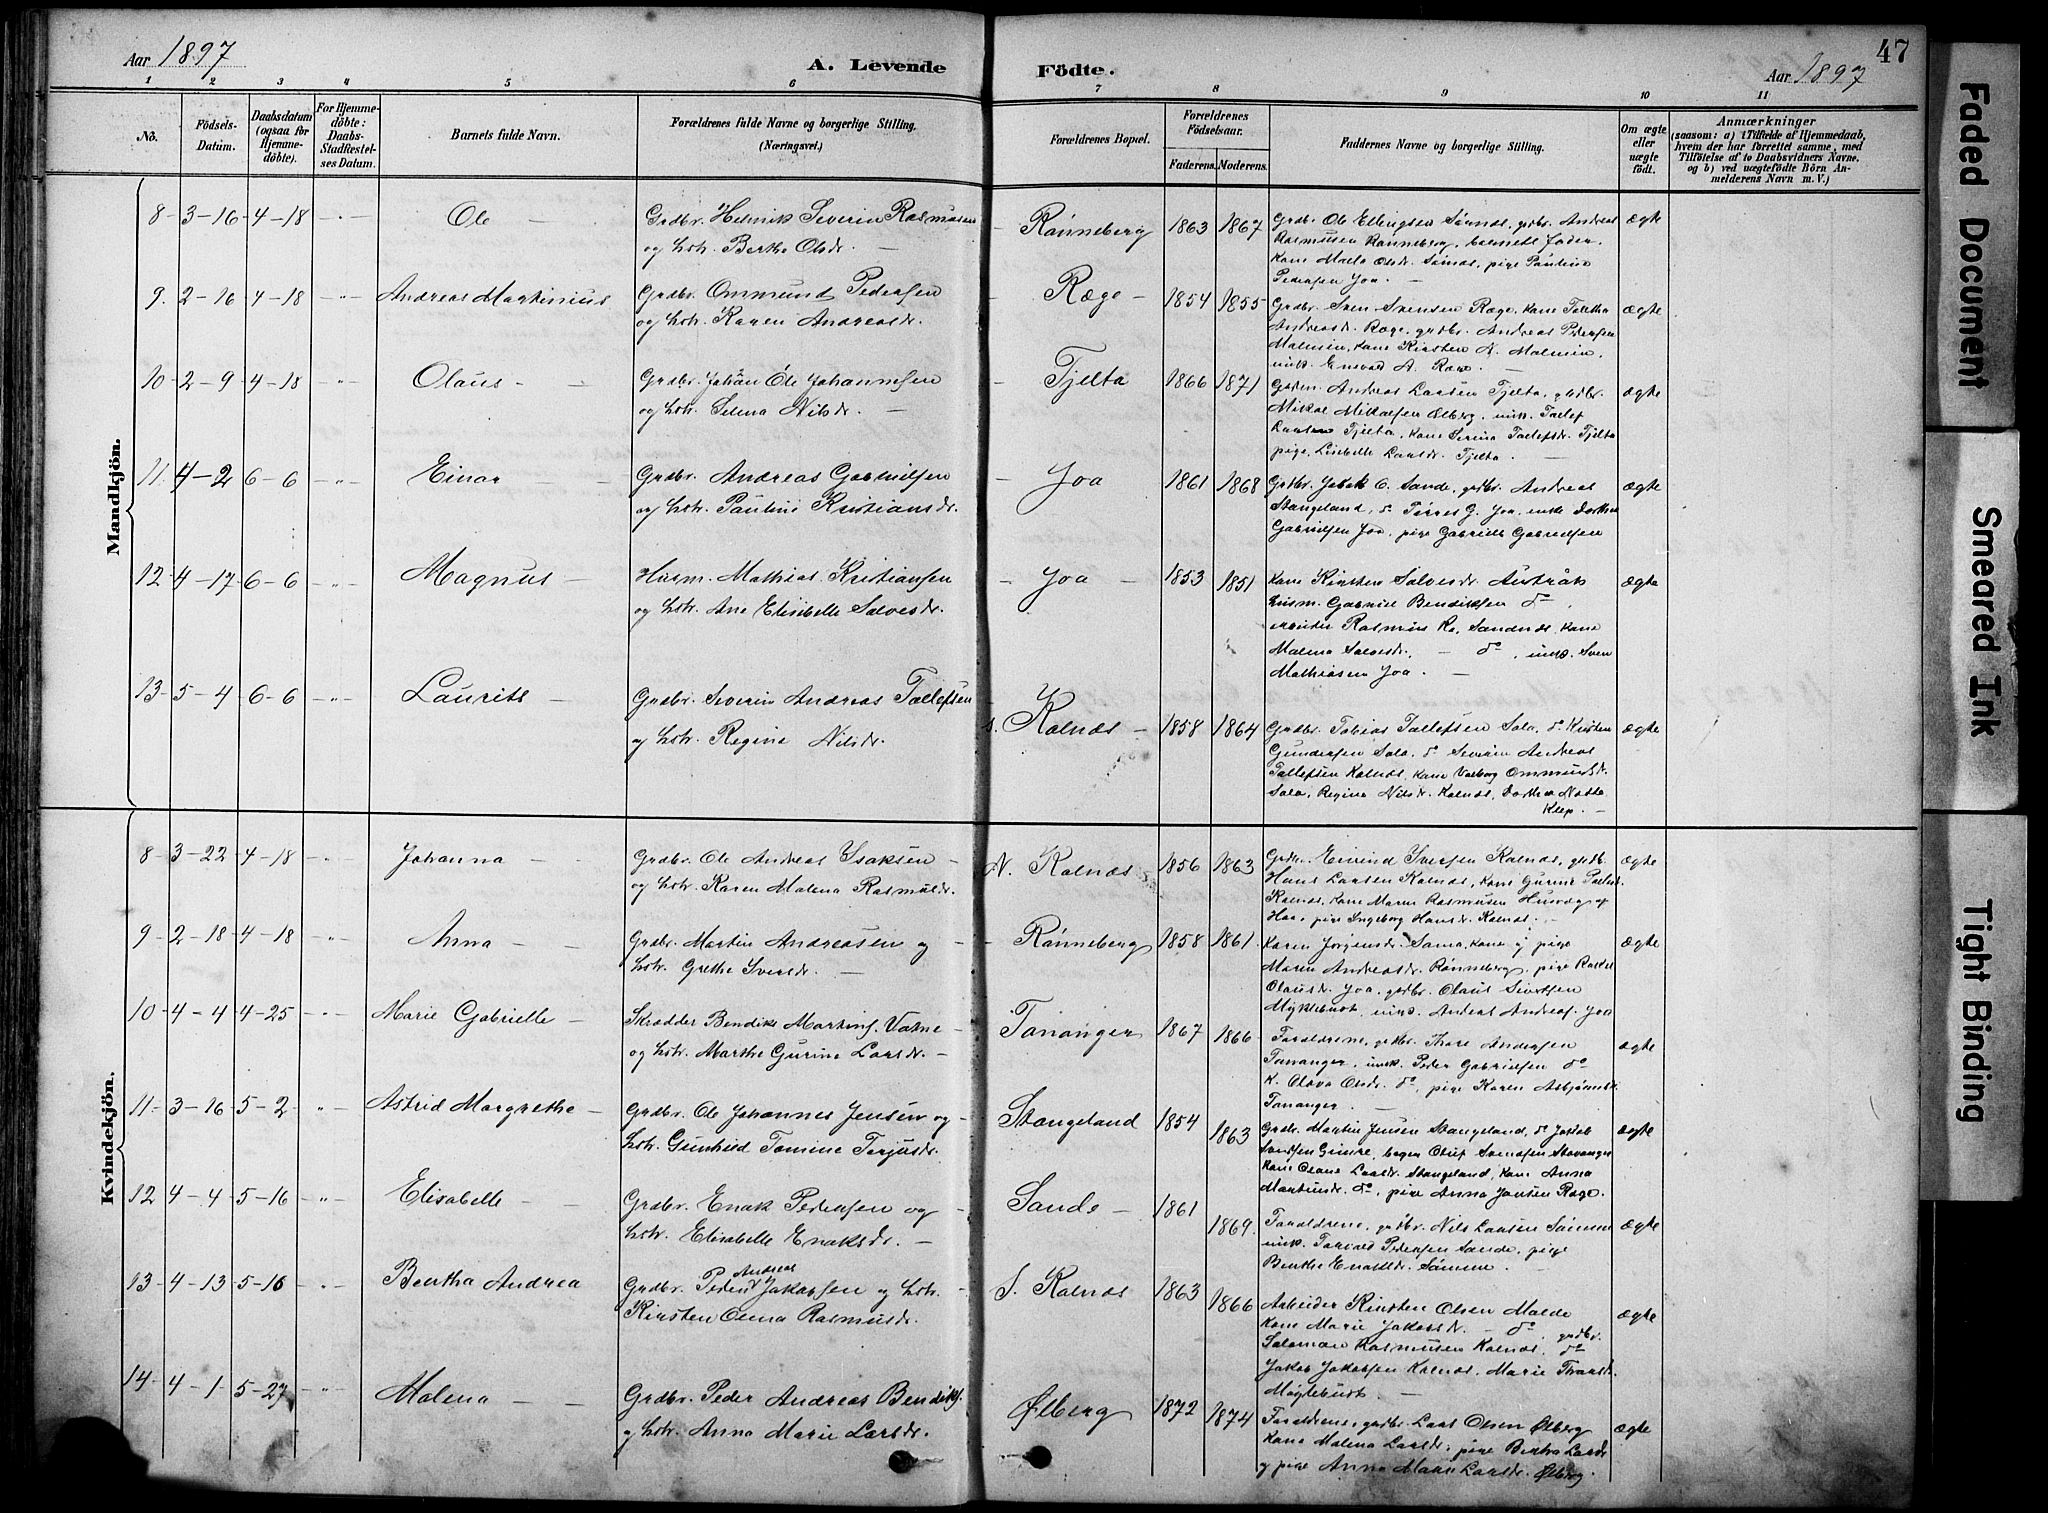 Aar 1897
A. Levende Födte.
Aar 1897
47
1 2 3 4 5 6 7 8 9 10 11
No.
Födsels-Datum.
Daabsdatum (ogsaa for Hjemme-döbte).
For Hjemme-döbte: Daabs-Stadfæstel-ses Datum.
Barnets fulde Navn.
Forældrenes fulde Navne og borgerlige Stilling.
(Næringsvei.)
Forældrenes Bopæl.
Forældrenes Födselsaar.
Faderens. Moderens.
Faddernes Navne og borgerlige Stilling.
Om ægte eller uægte födt.
Anmærkninger
(saasom: a) i Tilfælde af Hjemmedaab,
hvem der har forrettet samme, med
Tilföielse af to Daabsvidners Navne,
og b) ved uægtefödte Börn An-
melderens Navn m. V.)
Mandkjön.
8 - 3-16 4-18 -"- Ole -
Grdbr. Henrik Severin Rasmussen
og hstr. Berthe Olsdr. -
Rønneberg 1863 1867
Grdb. Ole Ellingsen Sømnes, grdbr. Andreas
Rasmussen Rønneberg, barnets fader,
kone Malla Olsdr. Sømes, pige Pauline
Pedersen Joa. -
ægte
9. 2-16 4-18 -"- Andreas Martinius
Grdbr. Ommund Pedersen
og hstr. Karen Andreasdr.
Ræge - 1854 1855
Grdbr. Sven Svensen Ræge, kone Taletha
Andreasdr. Ræge, grdbr. Andreas Pedersen
Malmin, kone Kirsten A. Malmin,
unk. A. Ræge. -
ægte
10 - 2-9 4-18 -"- Olaus -
Grdbr. Johan Ole Johannesen
og hstr. Selma Nilsdr. -
Tjelta 1866 1871
Andreas Larsen Tjelta, grdbr.
Mikal Mikalsen Ølberg, unk. Tollef
Larsen Tjelta, kone Serina Tollefsdr. Tjelta
pige Lisebelle Larsdr. Tjelta. -
ægte
11. 4-2 6-6 -"- Einar
Grdbr. Andreas Gabrielsen
og hstr. Pauline Kristiansdr.
Joa 1861 1868
Grdbr. Jakob C. Sande, grdbr. Andreas
Stangeland, do Torres G. Joa, enke Dorthea
Gabrielsen Joa, pige Gabrielle Gabrielsen
ægte
12 - 4-17 6-6 -"- Magnus -
Husm. Mathias Kristiansen
og hstr. Ane Elisebelle Salvesdr.
Joa - 1853 1851
Kone Kirsten Salvesdr. Austråt
husm. Gabriel Bendiksen do,
arbeider Rasmus Sandnes, kone
Malena Salvesdr. - do, unk. Sven
Mathiasen Joa. -
ægte
13 - 5-4 6-6 -"- Laurits -
Grdbr. Severin Andreas Tollefsen
og hstr. Regine Nilsdr.
S. Kolnes - 1858 1864
Grdbr. Tobias Tollefsen Sola, do Kirsten
Gundersen Sola, do Severin Andreas
Tollefsen Kolnes, kone Valborg Ommundsdr.
Sola, Regina Nilsdr. Kolnes, Dorthea
Klep. -
ægte
Kvindekjön.
8 - 3-22 4-18 -"- Johanna -
Grdbr. Ole Andreas Isaksen -
og hstr. Karen Malena Rasmusdr.
N. Kolnes 1856 1863
Grdbr. Eivind Sversen Kolnes, grdb.
Hans Larsen Kolnes, kone Gurine Tollefsdr.
Kolnes, kone Maren Rasmusen af
Haa, pige Ingeborg Hansdr. Kolnes. -
ægte
9 - 2-18 4-18 -"- Anna -
Grdbr. Martin Andreasen og -
hstr. Grethe Sversdr. -
Rønneberg 1858 1861.
Karen Jørgensdr. Sama, kone, pige
Maren Andreasdr. Rønneberg, pige Rakel
Olausdr. Joa, grdbr. Olaus Sivertsen
Myklebust, unk. Andreas Andreas. Joa
ægte
10 - 4-4 4-25 -"- Marie Gabrielle -
Skrædder Bendik Martins. Vatne -
og hstr. Marthe Gurine Larsdr. -
Tananger 1867 1866
Forældrene, grdbr. Thore Andersen
Tananger, unk. Peder Gabrielsen do
K. Olava Olsdr. do, pige Karen Asbjørnsdr.
Tananger. -
ægte
11 - 3-16 5-2 -"- Astrid Margrethe -
Grdbr. Ole Johannes Jensen og -
hstr. Gunhild Tomine Torjusdr.
Stangeland 1854 1863
Grdbr. Martin Jensen Stangeland, do Jakob
Sversen Gimre, bager Oluf Svendsen Stavanger
kone Oleane Larsdr. Stangeland, kone Anna
Martinsdr. do, pige Anna Jonsen Ræge.
ægte
12 4-4 5-16 -"- Elisabelle -
Grdbr. Enok Pedersen og -
hstr. Elisabelle Enoksdr. -
Sande - 1861 1869.
Forældrene, grdbr. Nils Larsen Sømme
unk. Torvald Pedersen Sande, pige
Berthe Enoksdr. Sømme. -
ægte
13 - 4-13 5-16 -"- Bertha Andrea
Grdbr. Peder Andreas Jakobsen og hstr. -
Kirsten Olena Rasmusdr.
S. Kolnes 1863 1866
Arbeider Kirsten Olsen Malde
kone Marie Jakobsdr. - do, grdbr.
Salomon Rasmusen Kolnes, do
Jakob Jakobsen Kolnes, Marie
Myklebust -
ægte
14 - 4-1 5-27 -"- Malena -
Grdbr. Peder Andreas Bendiks.
og hstr. Anna Marie Larsdr.
Ølberg 1872 1874
Forældrene, grdbr. Lars Olsen Ølberg
kone Malena Larsdr., pige Bertha Larsdr
og pige Anna Marie Larsdr. Ølberg.
ægte
Faded Document
Smeared Ink
Tight Binding